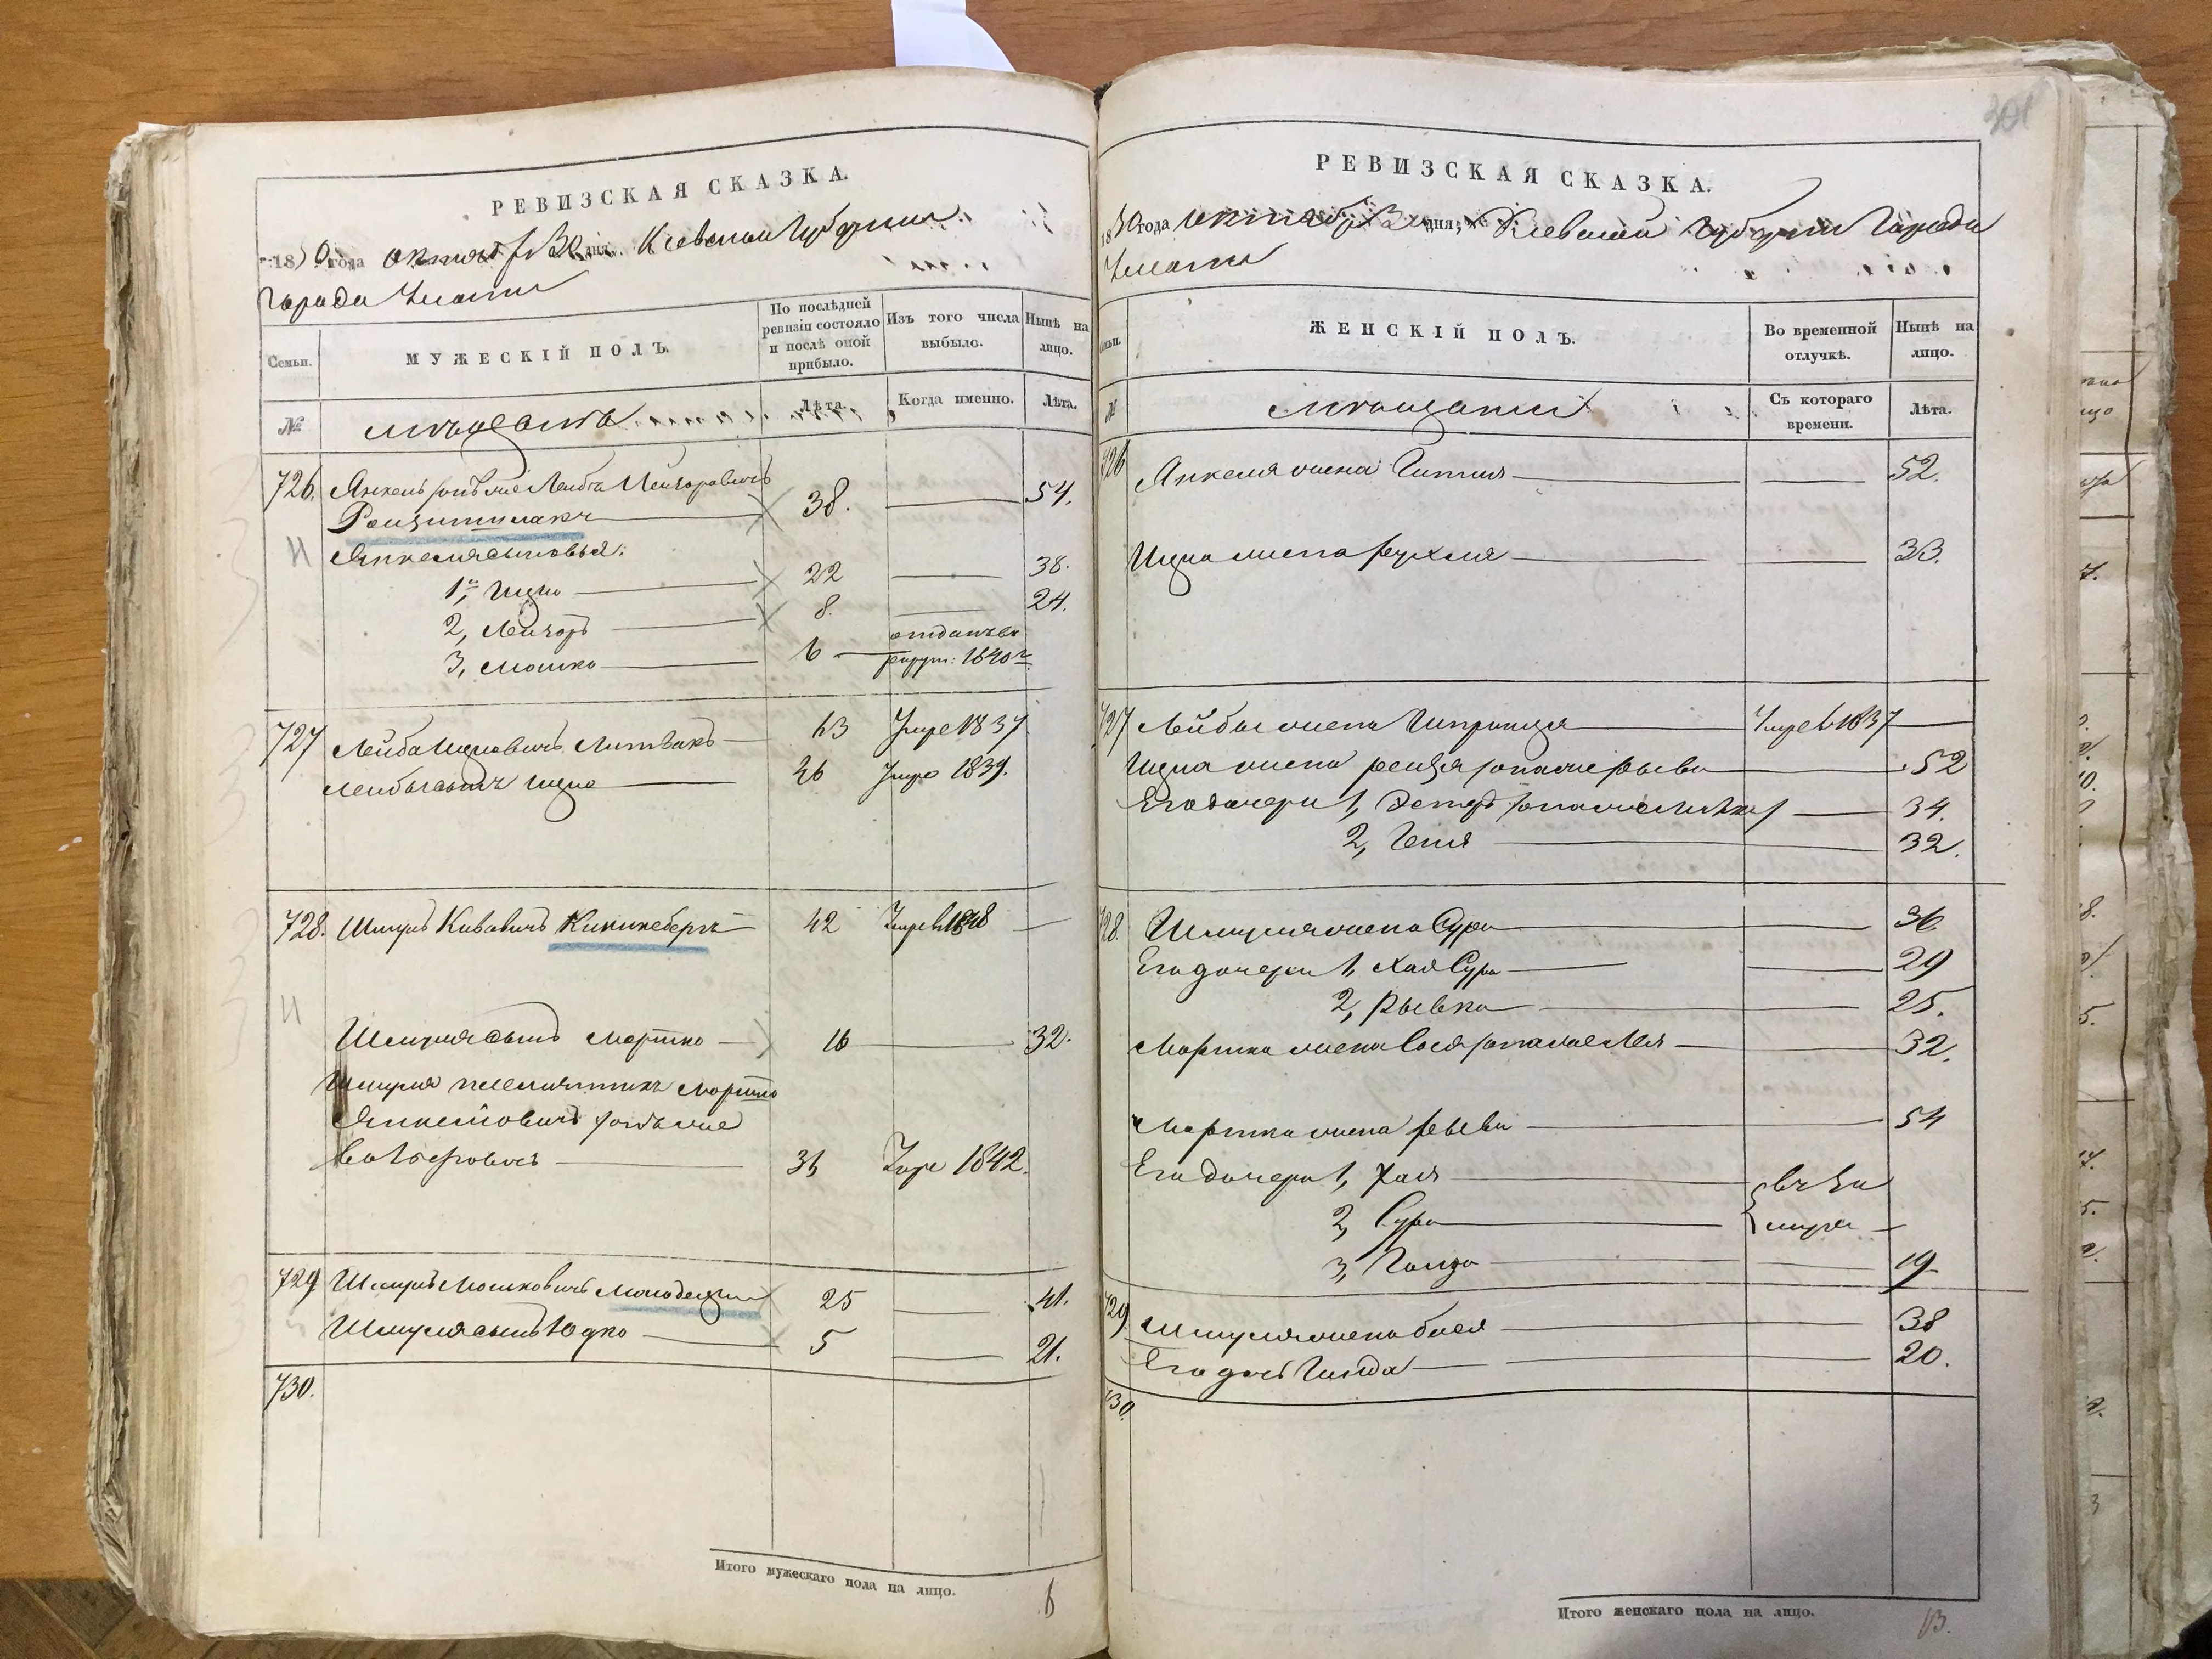 РЕВИЗСКАЯ СКАЗКА.
1850 года октября 30 дня. Киевской Губернии
Города Умани
Семьи.
МУЖЕСКІЙ ПОЛЪ.
По послѣдней ревизіи состояло и послѣ оной прибыло.
Изъ того числа выбыло.
Нынѣ на лицо.
№
мѣщанъ
Лѣта.
Когда именно.
Лѣта.
726. Янкель онъ же Лейба Лейзоровичъ
38. 54.
Янкеля сыновья:
1й, Ицко 22 38.
2, Лейзоръ 8. 24.
3, Мошко 6 отданъ въ рекрут: 1840 г.
727 Лейба Ицковичъ Литвакъ 63 Умре 1837
Лейбы сынъ Ицко 36 Умре 1839.
728. Шмуль Кивовичъ 42 Умре 1848
Шмуля сынъ Мортко 16 32.
Шмуля племянникъ Мортко
Янкелевичъ онъ же
35 Умре 1842.
729 Шмуль Мошковичъ 25 41.
Шмуля сынъ Юдко 5 21.
730.
Итого мужескаго пола на лицо. 6
301
РЕВИЗСКАЯ СКАЗКА.
1850 года октября 30 дня, Киевской Губернии Города
Умани
Семьи.
ЖЕНСКІЙ ПОЛЪ.
Во временной отлучкѣ.
Нынѣ на лицо.
№
мѣщанки
Съ котораго времени.
Лѣта.
726 Янкеля жена Гитля 52.
Ицка жена Рухля 33.
727 Лейбы жена Шпринца Умре 1837
Ицка жена Рейзя она же Рыва 52
Его дочери 1, Эстеръ она же 34.
2, Геня 32.
728. Шмуля жена Сура 36
Его дочери 1, Хая Сура 29
2, Рывка 25.
Мортка жена Сося она же Лея 32.
Мортка жена Рыва 54
Его дочери 1, Хая въ за
2, Сура мужѣ
3, 19
729 Шмуля жена Бася 38
Его дочь Гинда 20.
730.
Итого женскаго пола на лицо. 13.